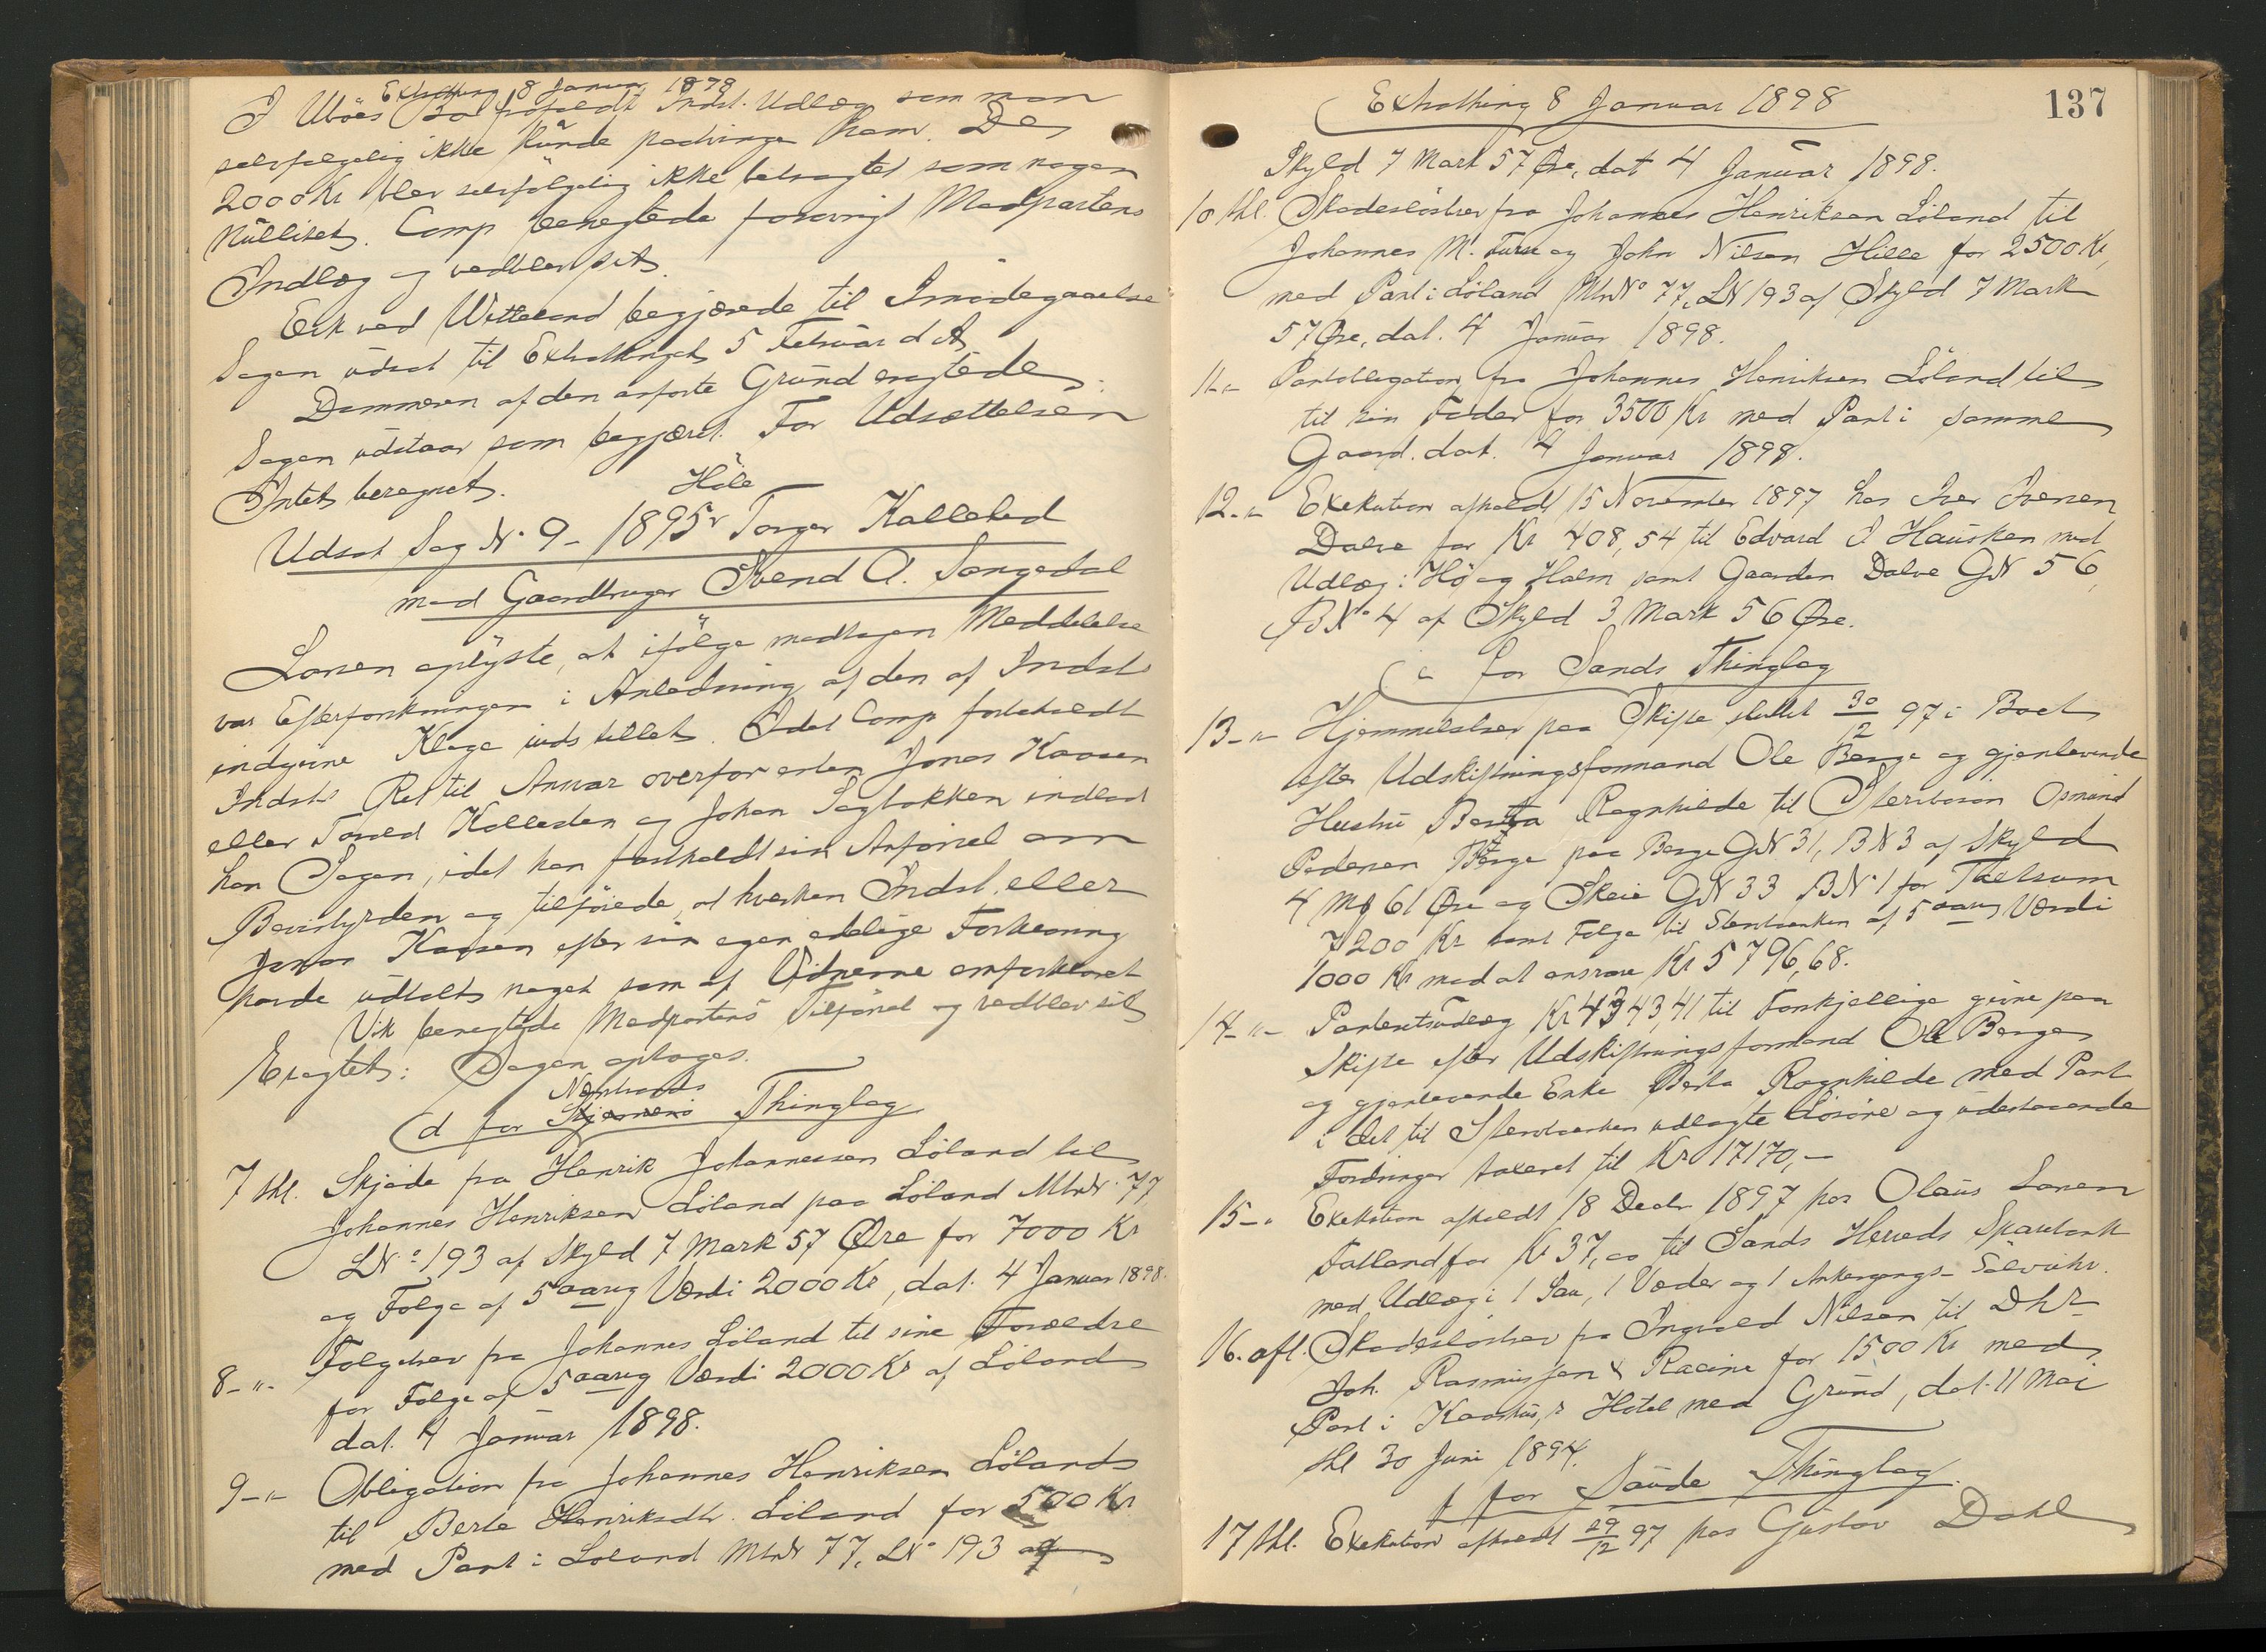 Extrathing 8 Januar 1898
I Ubøes Bo frafaldt Indst. Udlæg som man
selvfølgelig ikke kunde paatvinge ham. De
2000 Kr blev selvfølgelig ikke betragtet som nogen
Nullitet. Comp benegtede forøvrigt Modpartens
Indlæg og vedblev sit.
Eck ved Witteland begjærede til Imødegaaelse
Sagen udsat til Extrathinget 5 Februar d A
Dommeren af den anførte Grund eragtede:
Sagen udstaar som begjæret. For Udsættelsen
Intet beregnet.
Udsat Sag No 9 - 1895 Torger Kallekod
Höle
med Gaardbruger Svend A. Sangedal
Larsen oplyste, at ifølge modtagen Meddelelse
var Efterforskningen i Anledning af den af Indst
indgivne Klage indstillet. Idet Comp forbeholdt
Indsts Ret til Ansvar overfor enten Jonas Kaasen
eller Torvald Kallesten og Johan Sagbakken indlod
han Sagen, idet han fastholdt sin Anførsel om
Bevisbyrden og tilføiede, at hverken Indst. eller
Jonas Kaasen efter sin egen edelige Forklaring
havde udtalt noget som af Vidnerne omforklaret
Vik benegtede Modpartens Tilførsel og vedblev sit
Eragtet: Sagen optages.
Nærstrands
d for Thinglag
7 thl. Skjøde fra Henrik Johannessen Löland til
Johannes Henriksen Löland paa Löland MtrN. 77,
LNo 193 af Skyld 7 Mark 57 Øre for 7000 Kr
og Folge af 5 aarig Værdi 2000 Kr, dat. 4 Januar 1898.
8 -"- Folgebrev fra Johannes Löland til sine Forældre
for Folge af 5 aarig Værdi 2000 Kr af Löland
dat. 4 Januar 1898.
9 -"- Obligation fra Johannes Henriksen Löland
til Berte Henriksdtr. Löland for 500 Kr
med Pant i Loland MtrN 77, LNo 193 af
Extrathing 8 Januar 1898
137
Skyld 7 Mark 57 Øre, dat 4 Januar 1898.
10 thl. Skadesløsbrev fra Johannes Henriksen Löland til
Johannes M. og John Nilsen Hille for 2500 Kr,
med Pant i Löland MtrNo 77, LN 193 af Skyld 7 Mark
57 Øre, dat. 4 Januar 1898.
11 -"- Pantobligation fra Johannes Henriksen Löland til
til sin Fader for 3500 Kr med Pant i samme
Gaard. dat. 4 Januar 1898.
12 -"- Exekution afholdt 15 November 1897 hos Iver Iversen
Dalve for Kr 408,54 til Edvard J Hausken med
Udlæg i Hø og Halm samt Gaarden Dalve GN 56,
BNo 4 af Skyld 3 Mark 56 Øre.
e for Sands Thinglag
13 -"- Hjemmelsbrev paa Skifte sluttet 30/12 97 i Boet
efter Udskiftningsformand Ole Berge og gjenlevende
Hustru Berta Ragnhilde til Stervbosøn Osmund
Pedersen Berge paa Berge GN 31, BN 3 af Skyld
4 Mg 61 Øre og Skeie GN 33 BN. 1 for Tilsam
7200 Kr samt Folge til Stervbenken af 5 aarig Værdi
1000 Kr mod at ansvare Kr 5796,68.
14 -"- Panteudlæg Kr 4343,41 til Forskjellige givne paa
Skifte efter Udskiftningsformand Ole Berge
og gjenlevende Enke Berta Ragnhilde med Pant
i det til Stervbenken udlagte Løsøre og udestaaende
Fordringer taxeret til Kr 17170,-
15 -"- Exekution afholdt 18 Decbr 1897 hos Olaus Larsen
Fatland for Kr 37,00 til Sands Herreds Sparebank
med Udlæg i 1 Sau, 1 Væder og 1 Ankergangs-Sølvuhr.
16. afl. Skadesløsbrev fra Ingvald Nilsen til Dhr
Joh. Rasmussen & Racine for 1500 Kr med
Pant i Kaarhus's Hotel med Grund, dat. 11 Mai
thl 30 Juni 1894.
f for Saude Thinglag.
17 thl. Exekution afholdt 29/12 97 hos Gustav Dahl